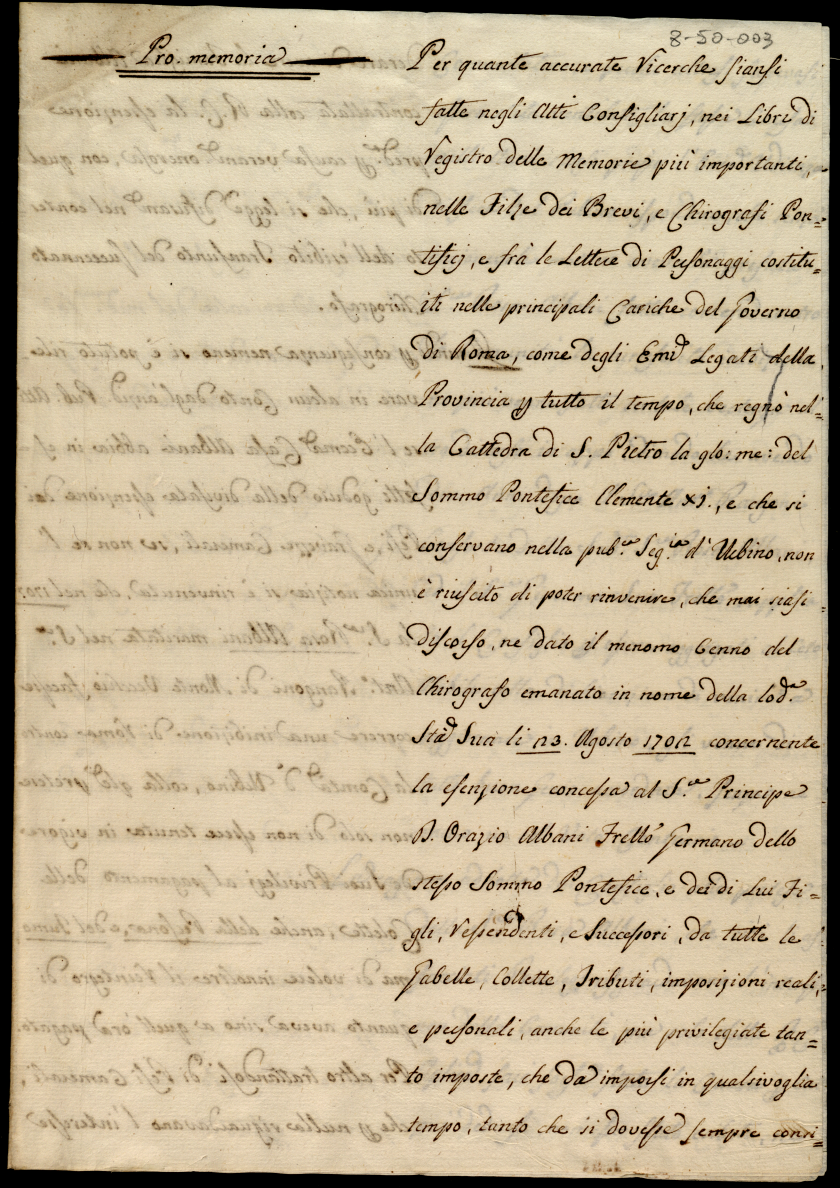 8-50-003
Pro. memoria
Per quante accurate Ricerche siansi
fatte negli Atti Consigliarj, nei Libri di
Registro delle Memorie più importanti,
nelle Filze dei Brevi, e Chirografi Pon=
tificj, e frà le Lettere di Personaggi costitu=
iti nelle principali Cariche del Governo
di Roma, come degli Emi Legati della
Provincia p tutto il tempo, che regnò nel=
la Cattedra di S. Pietro la glo: me: del
Sommo Pontefice Clemente XI., e che si
conservano nella pub.ca Seg.ia d'Urbino, non
è riuscito di poter rinvenire, che mai siasi
discorso, ne dato il menomo Cenno del
Chirografo emanato in nome della lod.e
Stà Sua li 23. Agosto 1702 concernente
la esenzione concessa al S.re Principe
D. Orazio Albani Frello Germano dello
stesso Sommo Pontefice, e dei di Lui Fi=
gli, Descendenti, e Successori, da tutte le
Gabelle, Collette, Tributi, imposizioni reali,
e personali, anche le più privilegiate tan=
to imposte, che da imporsi in qualsivoglia
tempo, tanto che si dovesse sempre consi=